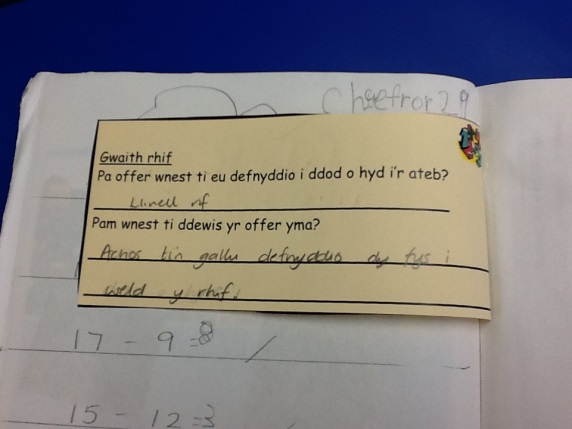 Chwefror 29
Gwaith rhif
Pa offer wnest ti eu defnyddio i ddod o hyd i'r ateb?
Llinell rif
Pam wnest ti ddewis yr offer yma?
Achos ti'n gallu defnyddio dy fys i
weld y rhif.
17 - 9 = 8
15 - 12 = 3